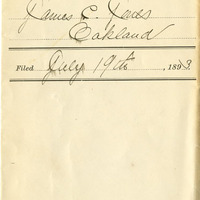 James E. Jones
Oakland
Filed July 19th, 1893.